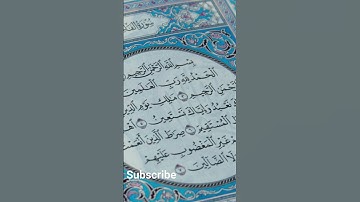 سُورَةُ الفَا
بِسْمِ اللَّهِ الرَّحْمَٰنِ الرَّحِيمِ
الْحَمْدُ لِلَّهِ رَبِّ الْعَالَمِينَ
الرَّحِيمِ ۝ مَالِكِ يَوْمِ الدِّينِ
وَإِيَّاكَ نَسْتَعِينُ ۝
الْمُسْتَقِيمَ ۝ صِرَاطَ الَّذِينَ
غَيْرِ الْمَغْضُوبِ عَلَيْهِمْ
وَلَا الضَّالِّينَ
Subscribe